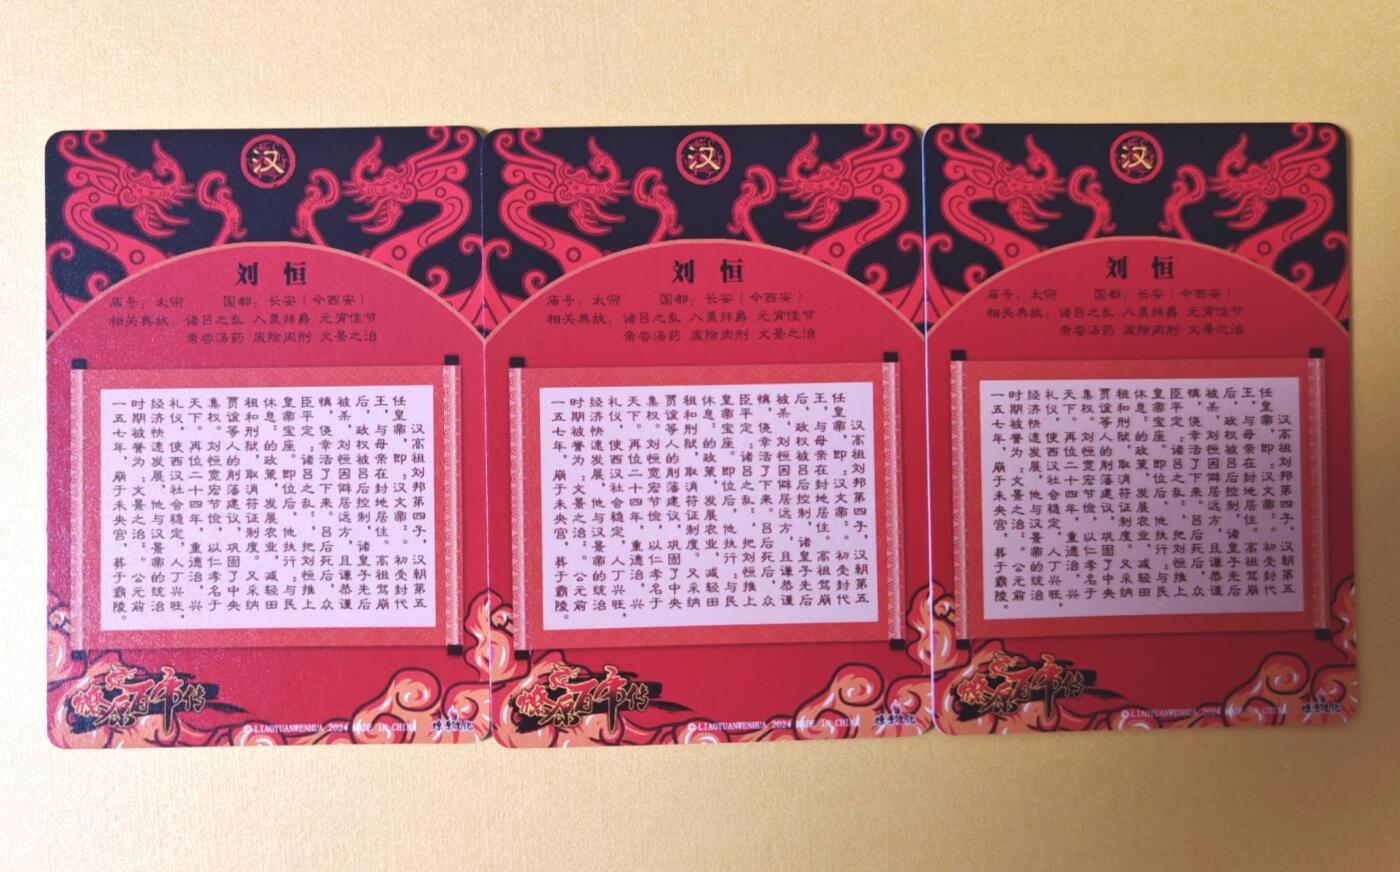 汉
刘恒
庙号：太宗 国都：长安（今西安）
相关典故：诸吕之乱 入粟拜爵 元宵佳节
亲尝汤药 废除肉刑 文景之治
汉高祖刘邦第四子，汉朝第五
任皇帝，即“汉文帝”。初受封代
王，与母亲在封地居住。高祖驾崩
后，政权被吕后控制，诸皇子先后
被杀，刘恒因僻居远方，且谦恭谨
慎，侥幸活了下来。吕后死后，众
臣平定“诸吕之乱”，把刘恒推上
皇帝宝座。即位后，他执行“与民
休息”的政策，发展农业，减轻田
租和刑狱，取消符证制度。又采纳
贾谊等人的削藩建议，巩固了中央
集权。刘恒宽宏节俭，以仁孝名于
天下。再位二十四年，重德治，兴
礼仪，使西汉社会稳定，人丁兴旺，
经济快速发展。他与汉景帝的统治
时期被誉为“文景之治”。公元前
一五七年，崩于未央宫，葬于霸陵。
燎源百帝传
©LIAOYUANWENHUA 2024 MADE IN CHINA
燎源文化
汉
刘恒
庙号：太宗 国都：长安（今西安）
相关典故：诸吕之乱 入粟拜爵 元宵佳节
亲尝汤药 废除肉刑 文景之治
汉高祖刘邦第四子，汉朝第五
任皇帝，即“汉文帝”。初受封代
王，与母亲在封地居住。高祖驾崩
后，政权被吕后控制，诸皇子先后
被杀，刘恒因僻居远方，且谦恭谨
慎，侥幸活了下来。吕后死后，众
臣平定“诸吕之乱”，把刘恒推上
皇帝宝座。即位后，他执行“与民
休息”的政策，发展农业，减轻田
租和刑狱，取消符证制度。又采纳
贾谊等人的削藩建议，巩固了中央
集权。刘恒宽宏节俭，以仁孝名于
天下。再位二十四年，重德治，兴
礼仪，使西汉社会稳定，人丁兴旺，
经济快速发展。他与汉景帝的统治
时期被誉为“文景之治”。公元前
一五七年，崩于未央宫，葬于霸陵。
燎源百帝传
©LIAOYUANWENHUA 2024 MADE IN CHINA
燎源文化
汉
刘恒
庙号：太宗 国都：长安（今西安）
相关典故：诸吕之乱 入粟拜爵 元宵佳节
亲尝汤药 废除肉刑 文景之治
汉高祖刘邦第四子，汉朝第五
任皇帝，即“汉文帝”。初受封代
王，与母亲在封地居住。高祖驾崩
后，政权被吕后控制，诸皇子先后
被杀，刘恒因僻居远方，且谦恭谨
慎，侥幸活了下来。吕后死后，众
臣平定“诸吕之乱”，把刘恒推上
皇帝宝座。即位后，他执行“与民
休息”的政策，发展农业，减轻田
租和刑狱，取消符证制度。又采纳
贾谊等人的削藩建议，巩固了中央
集权。刘恒宽宏节俭，以仁孝名于
天下。再位二十四年，重德治，兴
礼仪，使西汉社会稳定，人丁兴旺，
经济快速发展。他与汉景帝的统治
时期被誉为“文景之治”。公元前
一五七年，崩于未央宫，葬于霸陵。
燎源百帝传
©LIAOYUANWENHUA 2024 MADE IN CHINA
燎源文化